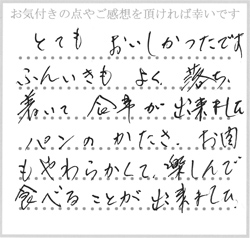 お気付きの点やご感想を頂ければ幸いです
とても おいしかったです
ふんいきも よく、落ち
着いて 食事が出来ました
パンの かたさ、お肉
もやわらかくて、楽しんで
食べる ことが 出来ました。